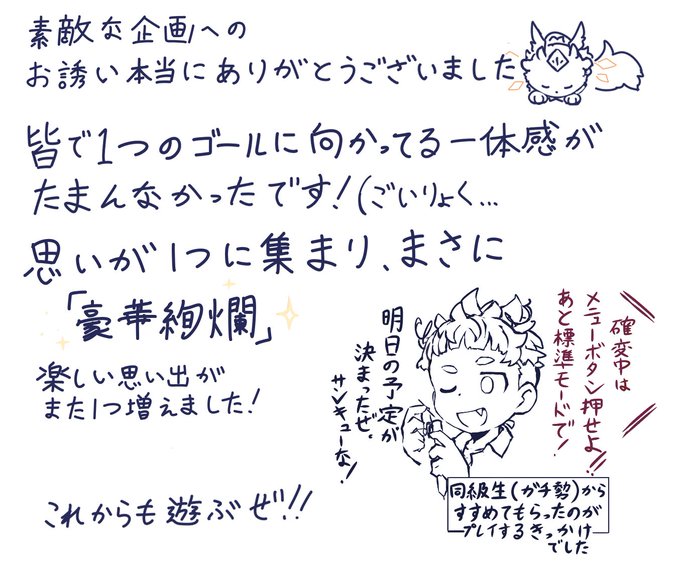 素敵な企画への
お誘い本当にありがとうございました
皆で1つのゴールに向かってる一体感が
たまんなかったです!(ごいりょく...
思いが1つに集まり、まさに
「豪華絢爛」
楽しい思い出が
また1つ増えました!
これからも遊ぶぜ!!
確変中は
メニューボタン押せよ!!
あと標準モードで!
明日の予定が
決まったぜ。
サンキューな!
同級生(ガチ勢)から
すすめてもらったのが
プレイするきっかけ
でした